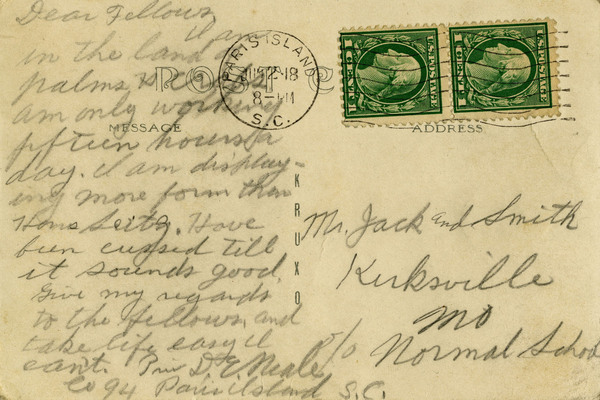 Dear Fellows,
I am
in the land of
palms, We
am only working
fifteen hours a
day. I am display-
ing more form than
Hans Seitz. Have
been cussed till
it sounds good.
Give my regards
to the fellows, and
take life easy. I
can't. Priv D. E. Neale
Co 94 Paris Island S.C.
POST C
MESSAGE
ADDRESS
KRUXO
PARIS ISLAND
12 18
8-PM
S.C.
U.S. POSTAGE
1 CENT 1
U.S. POSTAGE
1 CENT 1
Mr. Jack and Smith
Kirksville
Mo
c/o Normal School